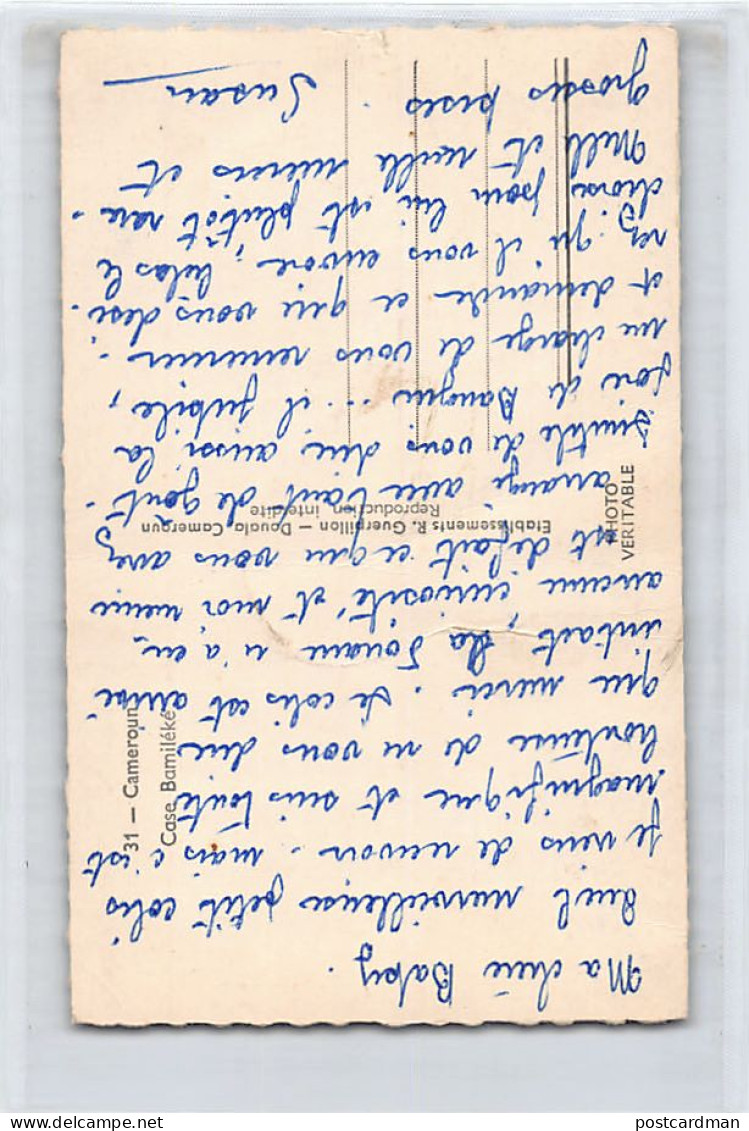 Ma chère Baby.
Quel merveilleux petit colis
Je viens de recevoir. mais c'est
magnifique et suis toute
honteuse de ne vous dire
que merci. Le colis est arrivé
intact, la Douane n'a eu
aucune curiosité et moi même
est défait ce que vous avez
arrangé avec tant de goût.
Inutile de vous dire aussi la
joie de ... il jubile,
me charge de vous remercier
et demande ce que vous desi-
rez qu'il vous envoie, hélas le
choix pour lui est plutôt rare.
Mille et mille mercis et
grosses bises. Susan
31 — Cameroun
Case Bamiléké
Etablissements R. Guerpillon — Douala Cameroun
Reproduction interdite
PHOTO
VERITABLE
postcardman